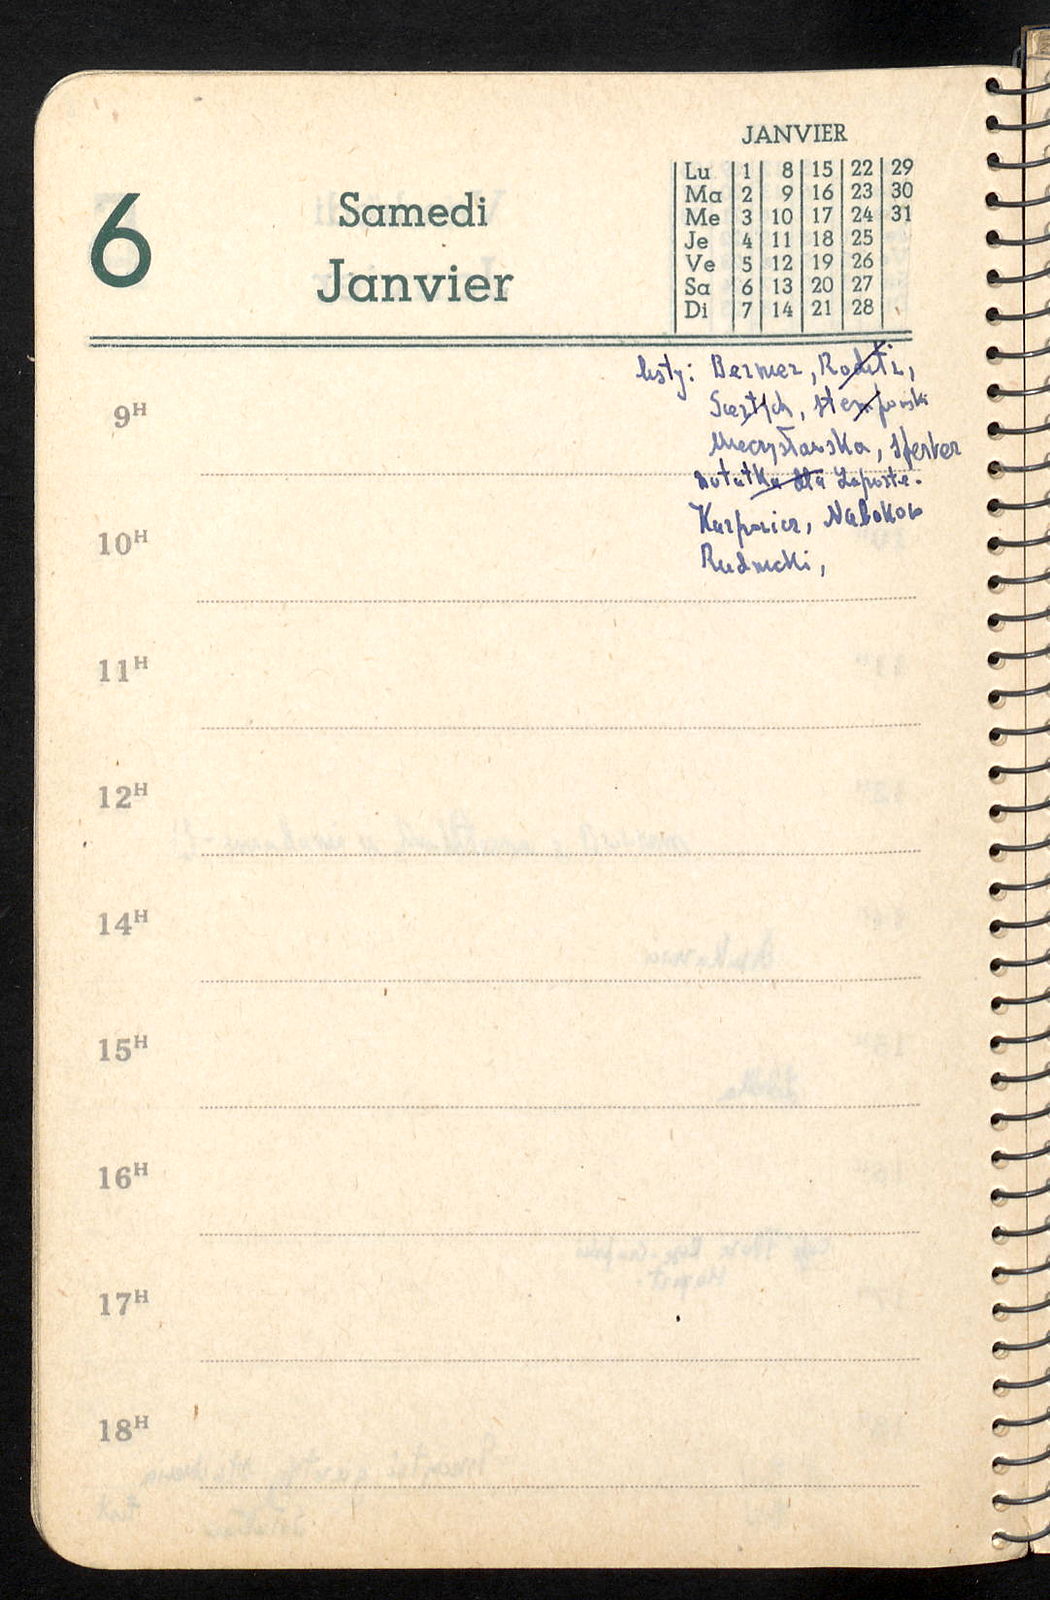 JANVIER
Lu 1 8 15 22 29
Ma 2 9 16 23 30
Me 3 10 17 24 31
Je 4 11 18 25
Ve 5 12 19 26
Sa 6 13 20 27
Di 7 14 21 28
6
Samedi
Janvier
listy: Berner, Roditi,
Stempowski
Mieczysławska, Sperber
9H
notatka dla Laporte.
Karpowicz, Nabokow
10H
Rudnicki,
11H
12H
14H
15H
16H
17H
18H